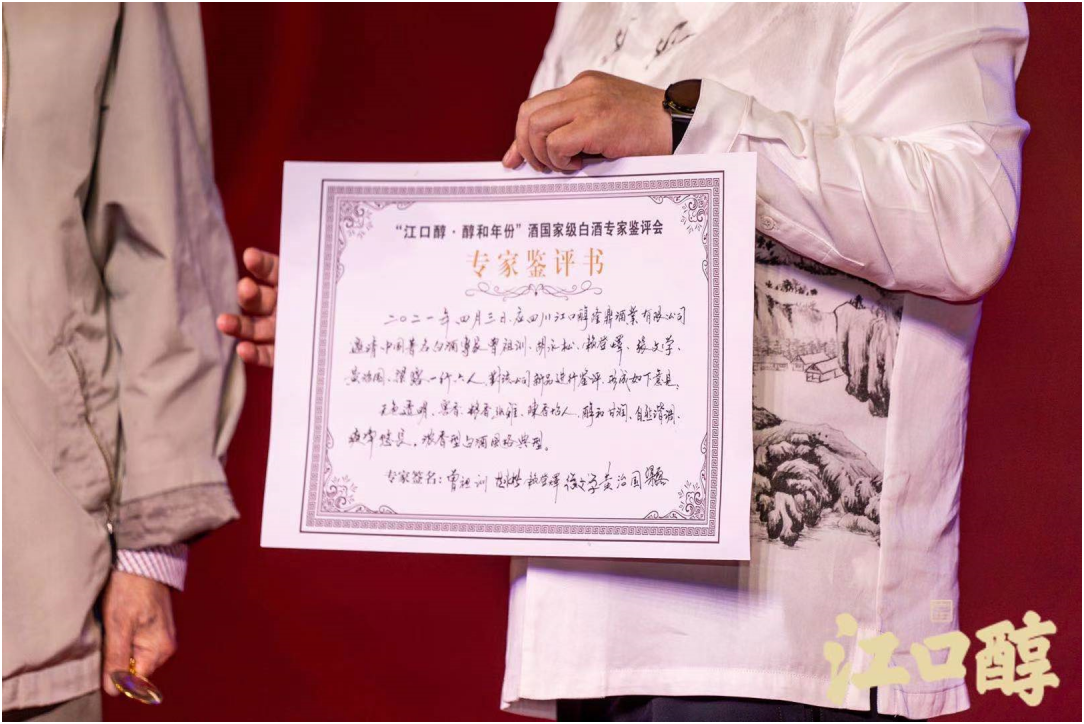 “江口醇·醇和年份”酒国家级白酒专家鉴评会
专家鉴评书
二〇二一年四月三日,应四川江口醇隆鼎酒业有限公司
邀请,中国著名白酒专家曾祖训、胡永松、赖登燡、徐文学、
黄治国、梁露一行六人,对该公司新品进行鉴评,形成如下意见:
无色透明、窖香、粮香优雅、陈香怡人、醇和甘润、自然谐调、
爽净悠长,浓香型白酒风格典型。
专家签名:曾祖训 胡永松 赖登燡 徐文学 黄治国
江口醇